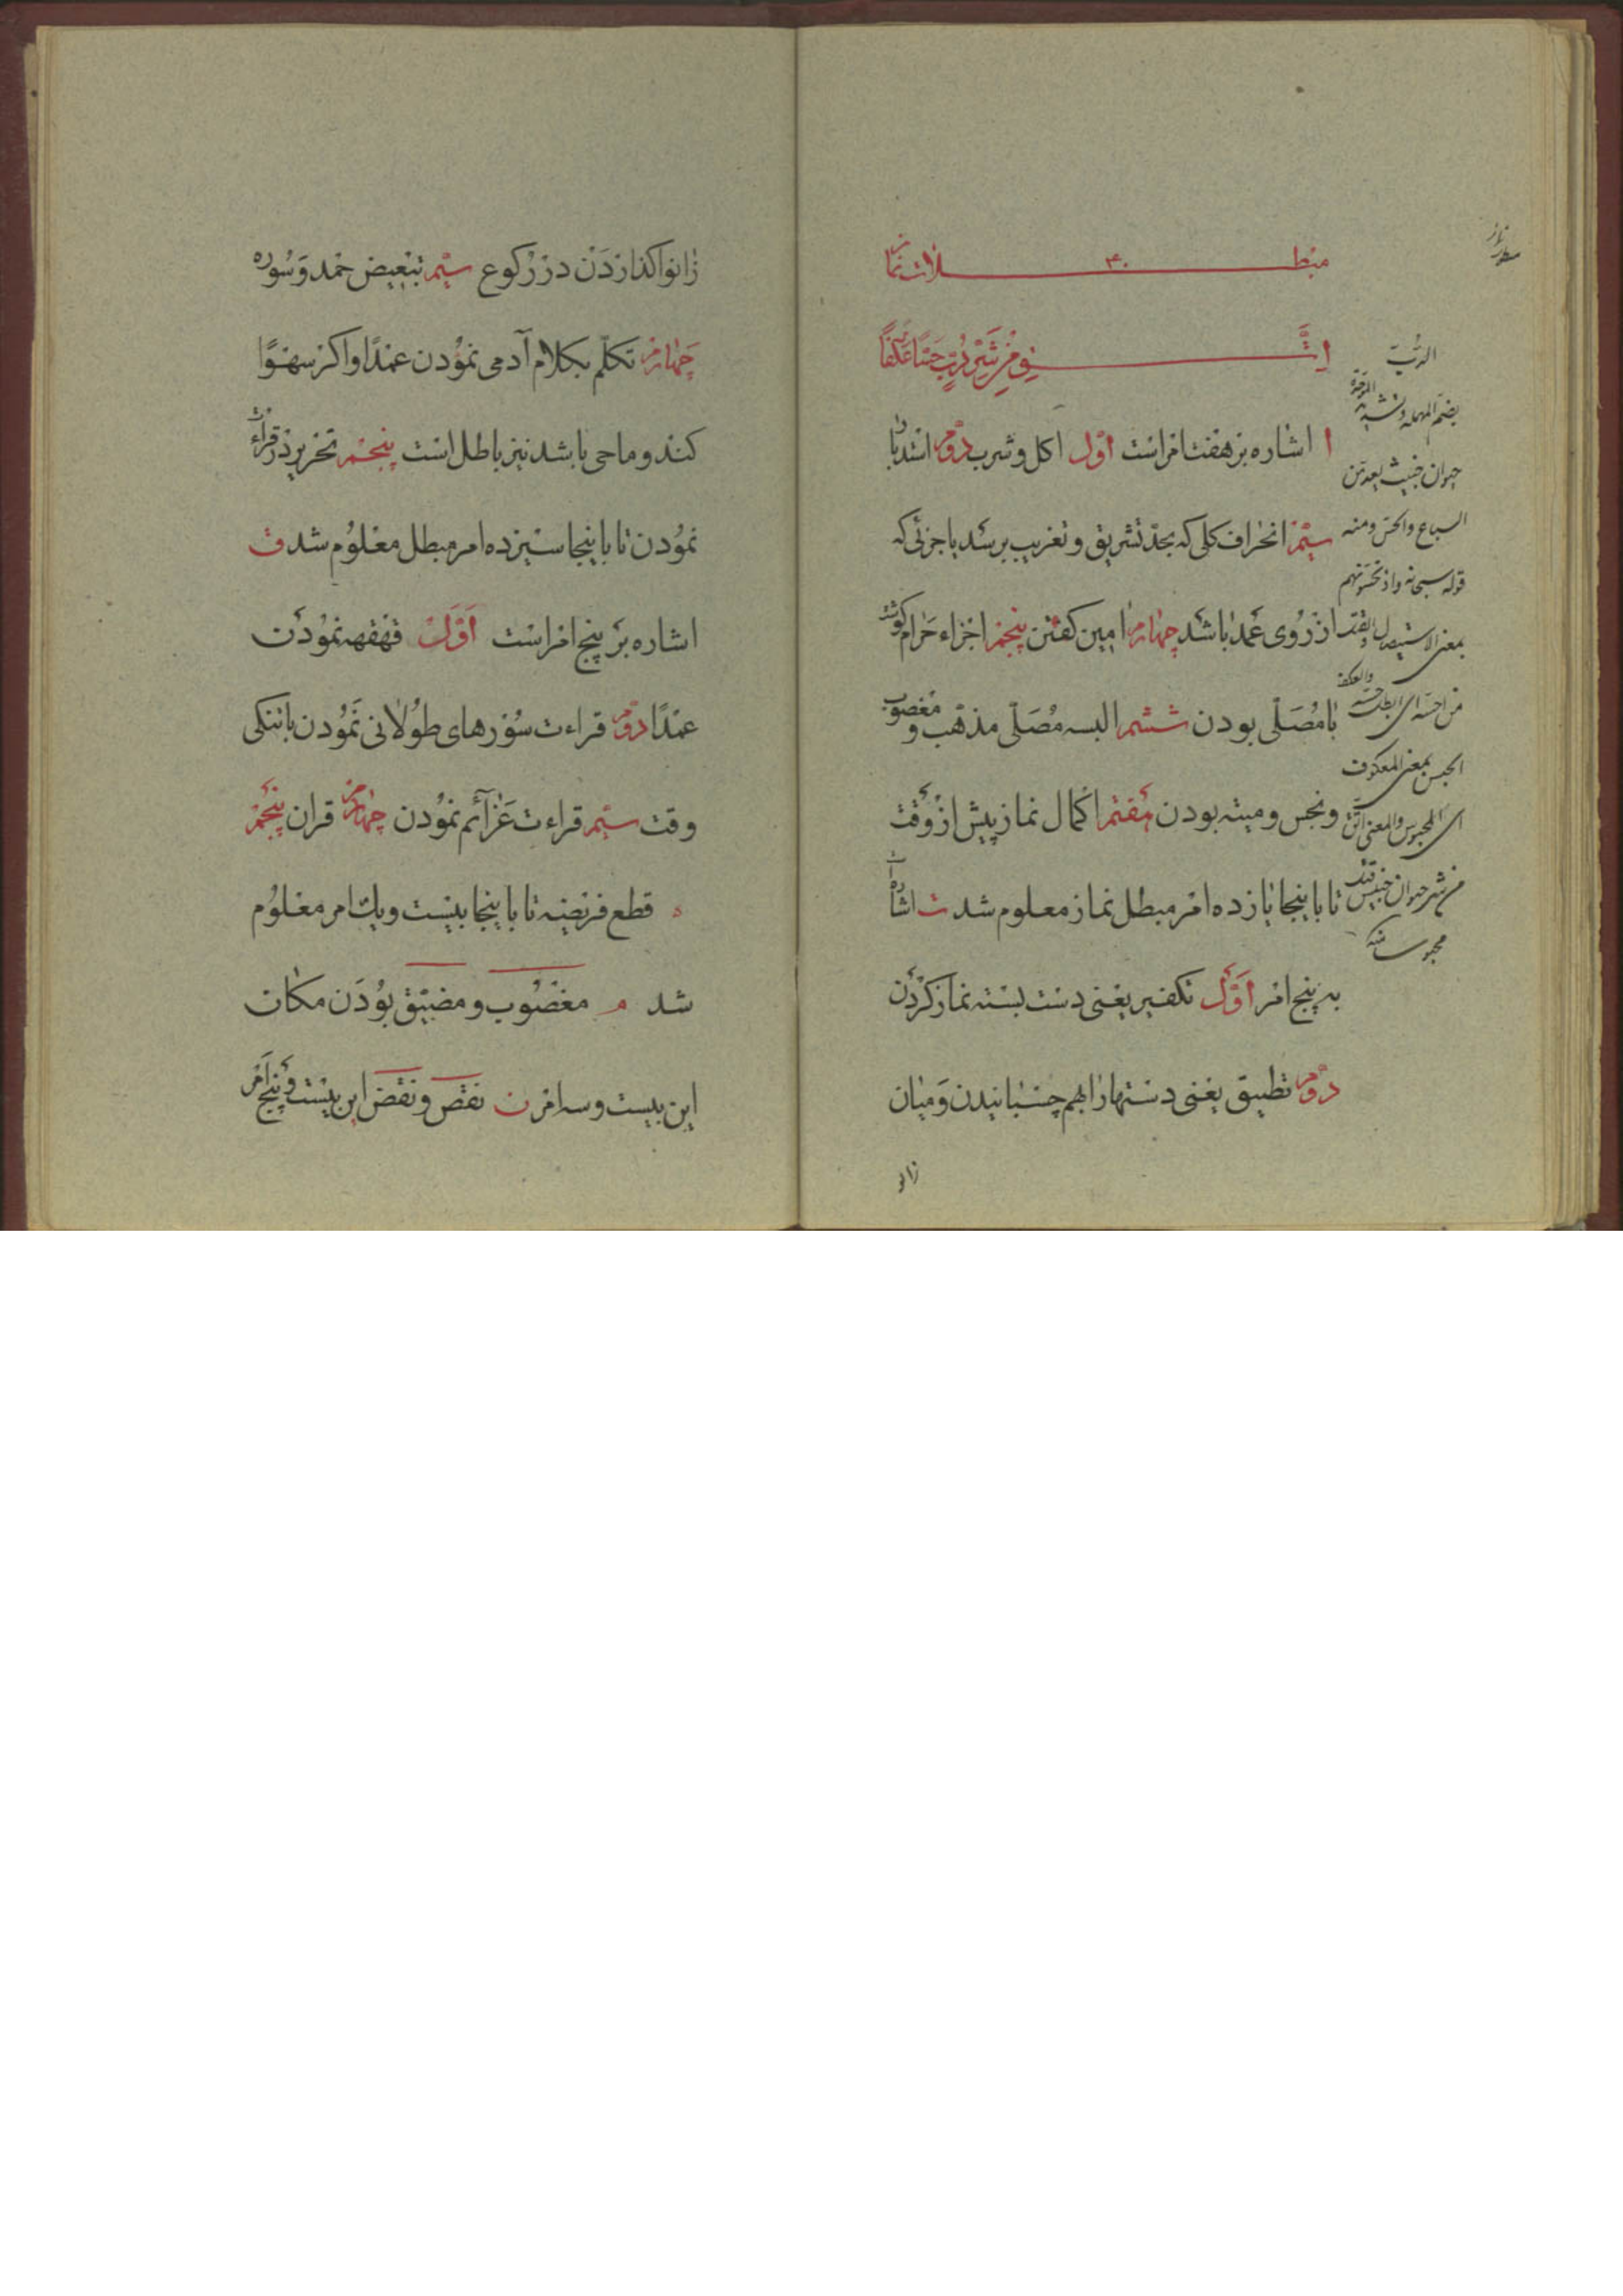 مبطلات نماز
۴۰
اشاره بر هفت امر است اول اکل و شرب دوم استدبار
سیم انحراف کلی که بحد تشریق و تغریب برسد یا جزئی که
از روی عمد باشد چهارم امین کفتن پنجم اجزاء حرام کوشت
با مصلی بودن ششم البسه مصلی مذهب و مغصوب
و نجس و میته بودن هفتم اکمال نماز پیش از وقت
تا باینجا یازده امر مبطل نماز معلوم شد ت اشاره
به پنج امر اول تکفیر یعنی دست بسته نماز کردن
دوم تطبیق یعنی دستها را بهم چسبانیدن و میان
زانو
الدب
بضم المهمله
حیوان خبیث یعد من
السباع والحس ومنه
قوله سبحانه واذ تحسونهم
بمعنی الاستیصال
الحبس بمعنی المعکوف
ای المحبوس والمعنی
زانو اکذاردن در رکوع سیم تبعیض حمد و سوره
چهارم تکلم بکلام آدمی نمودن عمدًا و اکر سهوًا
کند و ماحی باشد نیز باطل است پنجم تحریر در قرائت
نمودن تا باینجا سیزده امر مبطل معلوم شد ق
اشاره بر پنج امر است اول قهقهه نمودن
عمدًا دوم قراءت سورهای طولانی نمودن با تنکی
وقت سیم قراءت عزآئم نمودن چهارم قران پنجم
قطع فریضه تا باینجا بیست و یک امر معلوم
شد م مغصوب و مضیق بودن مکان
این بیست و سه امر ن نقص و نقض این بیست و پنج امر